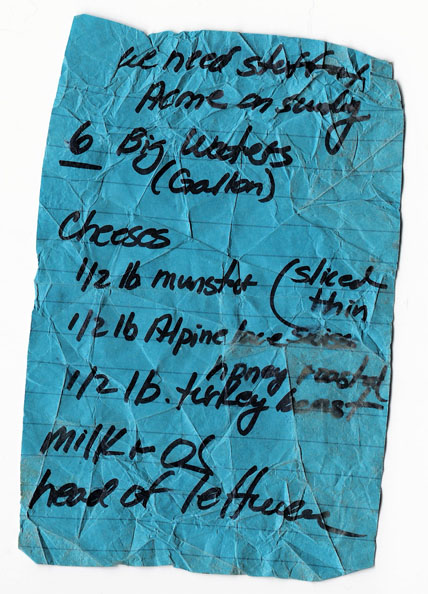 we need stuff from
Acme on sunday
6 Big Waters
(Gallon)
Cheeses
1/2 lb munster (sliced
thin
1/2 lb Alpine lace Swiss
honey roasted
1/2 lb. turkey breast
milk + OJ
head of lettuce